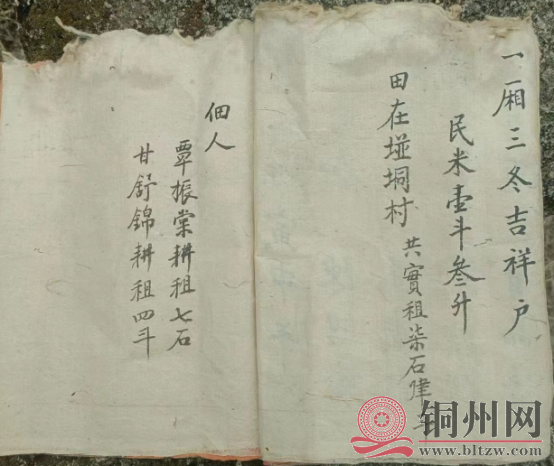 一厢三冬吉祥户
民米壹斗叁升
田在垭垌村 共實租柒石肆斗
佃人
覃振棠耕租七石
甘舒錦耕租四斗
铜州网
www.bltzw.com